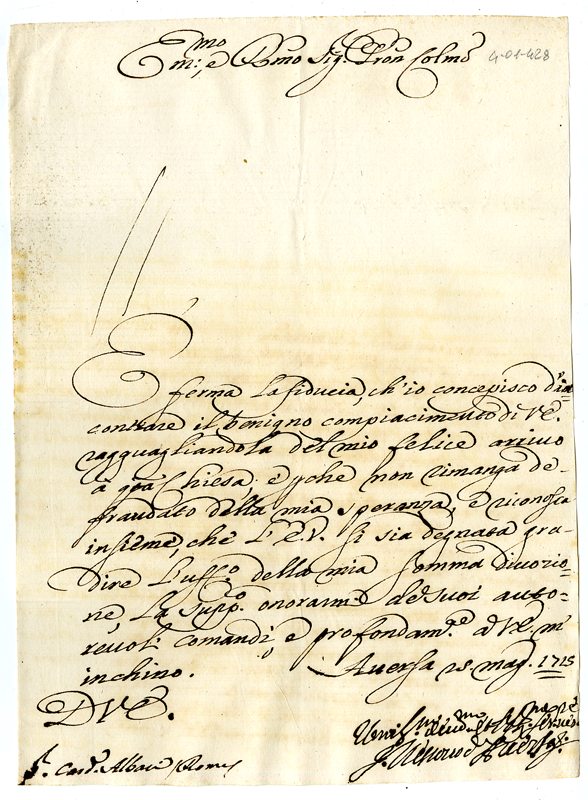 Em:mo e R:mo Sig: Pron Colmo
4-01-428
È ferma la fiducia, ch'io concepisco d'in=
contrare il benigno compiacimento di V.E.
ragguagliandola del mio felice arrivo
à q:ta Chiesa; e p che non rimanga de=
fraudato della mia speranza, e riconosca
insieme, che L'E.V. si sia degnata gra=
dire L'uff:o della mia somma divozio=
ne, La supp:o onorarmi de suoi auto=
revoli comandi, e profondam:te à V.E. m'
inchino. Aversa 25 mag: 1715
D V.E.
S:r Card: Albani Roma